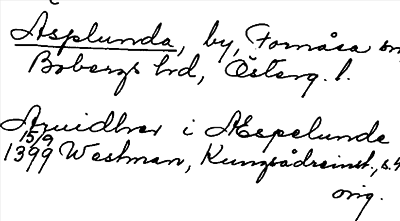 Äsplunda, by, Fornåsa sn
Bobergs hd, Österg. l.
Arvidhver i Æspelunde
15/9
1399 Westman, Kungsådreinst., s. 4
orig.